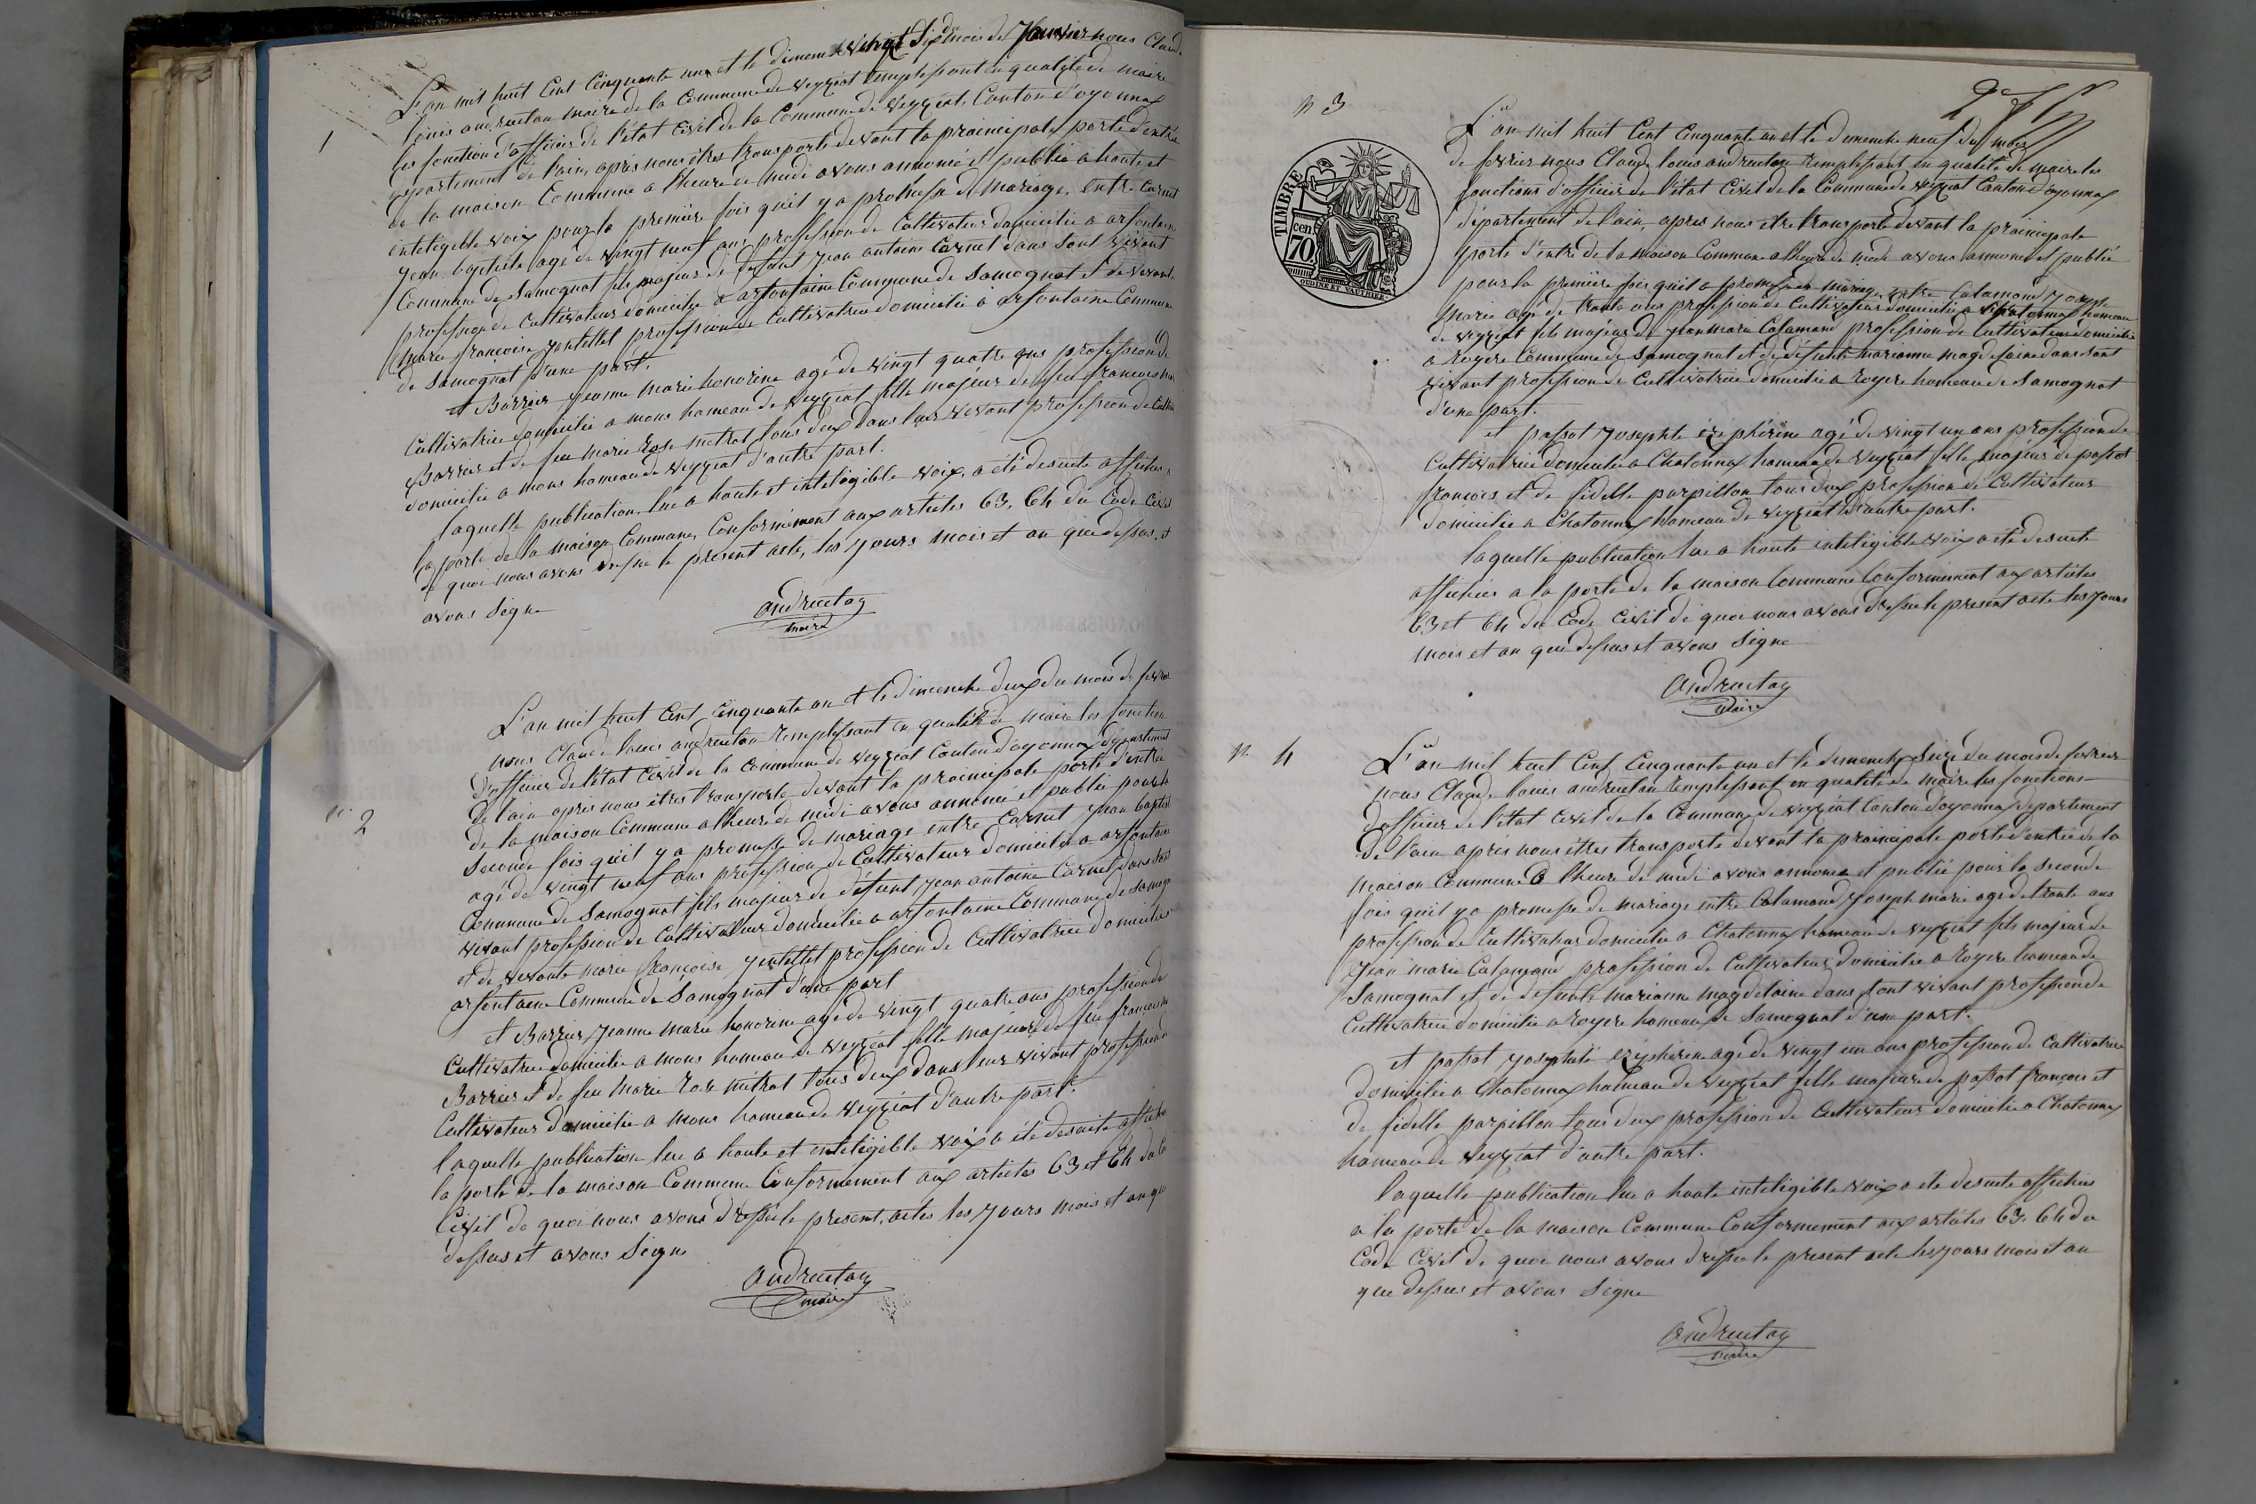 1
L'an mil huit Cent Cinquante un et le dimenche vingt Six mois de Janvier nous Claude
louis andruetan maire de la Commune de veyziat remplissant en qualité de maire
les fonction d'officier de l'état Civil de la Commune de veyziat, Canton d'oyonnax
departement de l'ain, après nous êtres transporté devant la prainicipale porte d'entrée
de la maison Commune a l'heure de midi avons annoncé et publié a haute et
inteligible voix pour la premiere fois qu'il y a promesse de mariage, entre Carnet
jean baptiste agé de vingt neuf ans profession de Cultivateur domicilié a arfontaine
Commune de Samognat fils majeur de défunt jean antoine Carnet dans sont vivant
profession de Cultivateur domicilié a arfontaine Commune de Samognat et de vivante
marie françoise yentellet profession de Cultivatrice domicilié a arfontaine Commune
de Samognat d'une part.
et Barrier jeanne marie honorine agé de vingt quatre ans profession de
Cultivatrice domicilié a mons hameau de veyziat fille majeur de feu francois
Barrier et de feu marie rose metral tous deux dans leur vivant profession de
domicilié a mons hameau de veyziat d'autre part.
laquelle publication lue a haute et inteligible voix, a été desuite affichée
la porte de la maison Commune, Conformément aux articles 63, 64 du Code Civil
de quoi nous avons dressé le présent acte, les jours mois et an que dessus, et
avons Signe
andruetan
maire
n° 2
L'an mil huit Cent Cinquante un et le dimenche deux du mois de fevrier
nous Claude louis andruetan remplissant en qualité de maire les fonction
d'officier de l'état Civil de la Commune de veyziat Canton d'oyonnax département
de l'ain apres nous êtres transporté devant la prainicipale porte d'entrée
de la maison Commune a l'heure de midi avons annoncé et publié pour la
seconde fois qu'il y a promesse de mariage entre Carnet jean baptiste
agé de vingt neuf ans profession de Cultivateur domicilié a arfontaine
Commune de Samognat fils majeur de défunt jean antoine Carnet dans sont
vivant profession de Cultivateur domicilié a arfontaine Commune de Samognat
et de vivante marie françoise yentellet profession de Cultivatrice domicilié
arfontaine Commune de Samognat d'une part
et Barrier jeanne marie honorine agé de vingt quatre ans profession de
Cultivatrice domicilié a mons hameau de veyziat fille majeure de feu francois
Barrier et de feu marie rose metral tous deux dans leur vivant profession
Cultivateur domicilié a mons hameau de veyziat d'autre part.
laquelle publication lue a haute et inteligible voix a été desuite affichée
la porte de la maison Commune Conformement aux articles 63 et 64 du Code
Civil de quoi nous avons dressé le présent, actes les jours mois et an que
dessus et avons Signe
andruetan
maire
n 3
2e
TIMBRE
70
cen.
L'an mil huit Cent Cinquante un et le dimenche neuf du mois
de fevrier nous Claude louis andruetan remplissant en qualité de maire les
fonctions d'officier de l'état Civil de la Commune de veyziat Canton d'oyonnax
département de l'ain, apres nous être transporté devant la prainicipale
porte d'entré de la maison Commune a l'heure de midi avons annoncé et publié
pour la premiere fois qu'il a promesse de mariage entre Calamand joseph
Marie agé de trente ans profession de Cultivateur domicilié a Chatonnax hameau
de veyziat fils majeur de jean marie Calamand profession de Cultivateur domicilié
a royere Commune de Samognat et de défunte marianne magdelaine dans sont
vivant profession de Cultivatrice domicilié a royere hameau de Samognat
d'une part.
et passot josephte zéphérine agé de vingt un ans profession de
Cultivatrice domicilié a Chatonnax hameau de veyziat fille majeur de passot
françois et de fidelle parpillon tous deux profession de Cultivateur
domicilié a Chatonnax hameau de veyziat d'autre part.
laquelle publication lue a haute inteligible voix a été desuite
affichée a la porte de la maison Commune Conformement aux articles
63 et 64 du Code Civil de quoi nous avons dressé le présent acte les jours
mois et an que dessus et avons Signe
andruetan
maire
n. 4
L'an mil huit Cent Cinquante un et le dimenche Seize du mois de fevrier
nous Claude louis andruetan remplissant en qualité de maire les fonctions
d'officier de l'état Civil de la Commune de veyziat Canton d'oyonnax département
de l'ain apres nous êtres transporté devant la prainicipale porte d'entrée de la
maison Commune a l'heure de midi avons annoncé et publié pour la seconde
fois qu'il y a promesse de mariage entre Calamand joseph marie agé de trente ans
profession de Cultivateur domicilié a Chatonnax hameau de veyziat fils majeur de
jean marie Calamand profession de Cultivateur domicilié a royere hameau de
Samognat et de defunte marianne magdelaine dans sont vivant profession de
Cultivatrice domicilié a royere hameau de Samognat d'une part.
et passot josephte zéphérine agé de vingt un ans profession de Cultivatrice
domicilié a Chatonnax hameau de veyziat fille majeure de passot françois et
de fidelle parpillon tous deux profession de Cultivateur domicilié a Chatonnax
hameau de veyziat d'autre part.
laquelle publication lue a haute inteligible voix a été desuite affichée
a la porte de la maison Commune Conformement aux articles 63. 64 du
Code Civil de quoi nous avons dressé le present acte les jours mois et an
que dessus et avons Signe
andruetan
maire